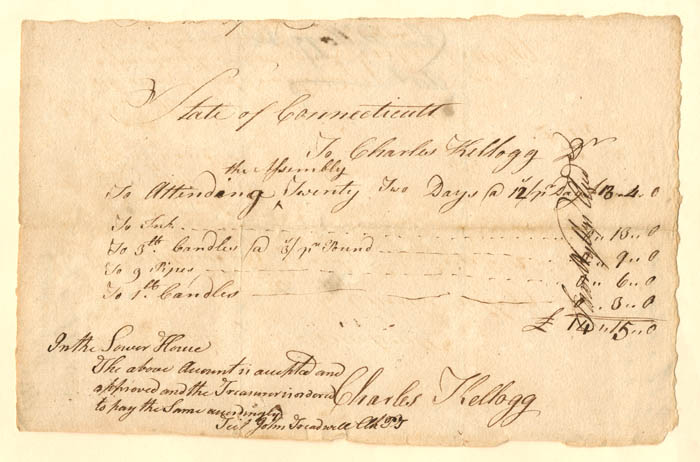 State of Connecticutt
To Charles Kellogg Dr
the Assembly
To Attending ^ Twenty Two Days @ 12/ pr Day £13..4..0
To Ink 13..0
To 3lb Candles @ 3/ pr Pound 9..0
To 9 Pipes 6..0
To 1lb Candles 3..0
£ 14..15..0
In the Lower House
The above Account is accepted and
approved and the Treasurer is ordered
to pay the Same accordingly
Test John Treadwell Clk
Charles Kellogg